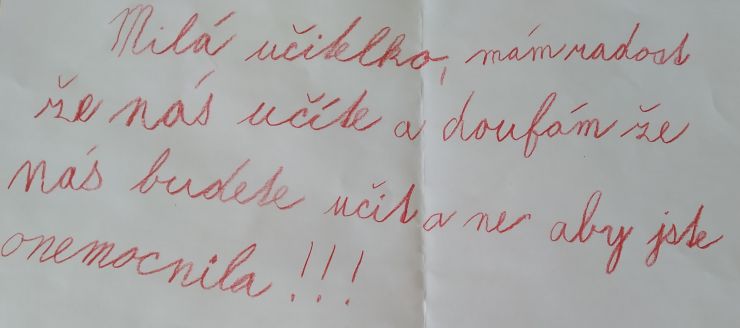 Milá učitelko, mám radost
že nás učíte a doufám že
nás budete učit a ne aby jste
onemocnila !!!